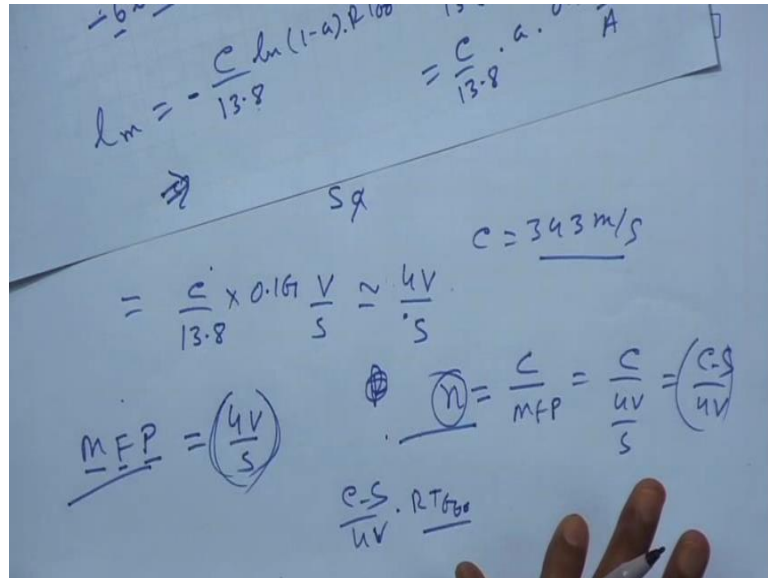 lm = - C/13.8 ln(1-a). RT60 = C/13.8 . a .
A
⇒
Sa
C = 343 m/s
= C/13.8 × 0.161 V/S ≃ 4V/S
n = C/MFP = C/(4V/S) = (C-S/4V)
MFP = (4V/S)
C-S/4V . RT60